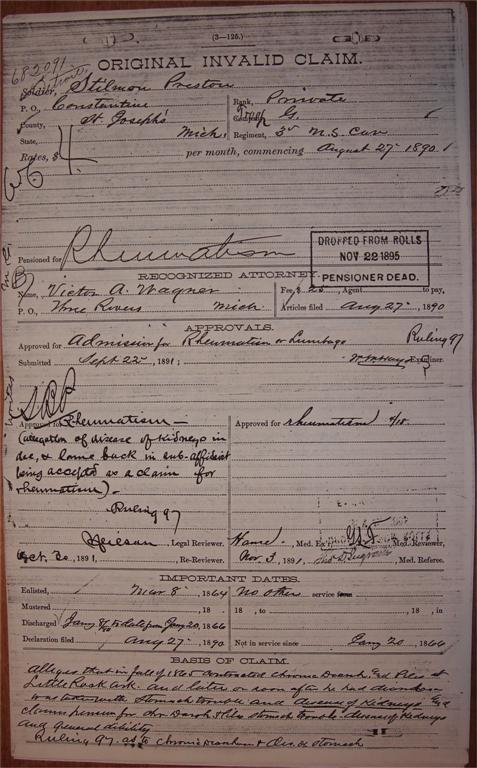 (3-125.)
682091
ORIGINAL INVALID CLAIM.
Soldier, Stilmon Preston
P. O., Constantine
Rank, Private
County, St. Joseph's
Troop G,
State, Mich,
Regiment, 3d M.S. Cav
Rates, $ 4
per month, commencing August 27 1890
Pensioned for Rheumatism
DROPPED FROM ROLLS
NOV 22 1895
PENSIONER DEAD.
RECOGNIZED ATTORNEY.
Name, Victor A. Wagner
Fee, $ 25, Agent to pay,
P. O., Three Rivers Mich
Articles filed Aug 27, 1890
APPROVALS.
Approved for Admission for Rheumatism or Lumbago Ruling 97
Submitted Sept 22, 1891; Examiner.
Approved for Rheumatism—
(allegation of disease of kidneys in
dec, & lame back in sub-affidavit
being accepted as a claim for
rheumatism)—
Ruling 97
Approved for rheumatism 4/18.
, Legal Reviewer.
, Med. Ex'r. , Med. Reviewer,
Oct. 30, 1891, Re-Reviewer.
Nov. 3, 1891, Med. Referee.
IMPORTANT DATES.
Enlisted, Mar 8, 1864
No other service
Mustered , 18
, 18 , to , 18 , in
Discharged to date from Jany 20, 1866
Declaration filed Aug 27, 1890
Not in service since Jany 20, 1866
BASIS OF CLAIM.
Alleges that in fall of 1865 contracted chronic & Piles at
Little Rock Ark. and later or soon after he had
was taken with stomach trouble and disease of Kidneys
Claims for & Piles stomach trouble disease of Kidneys
and general debility
Ruling 97 as to chronic & dis. of stomach